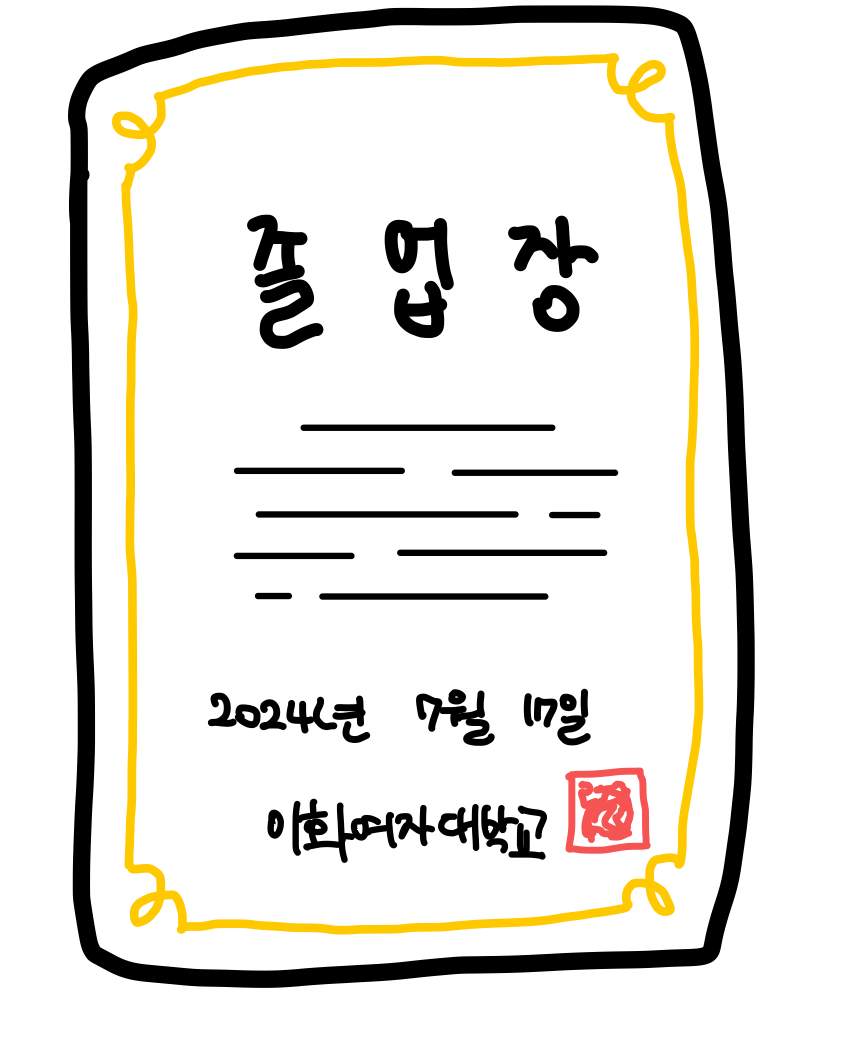 졸 업 장
2024년 7월 17일
이화여자대학교